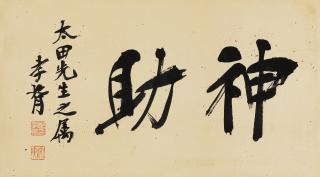 神助
太田先生之属
孝胥